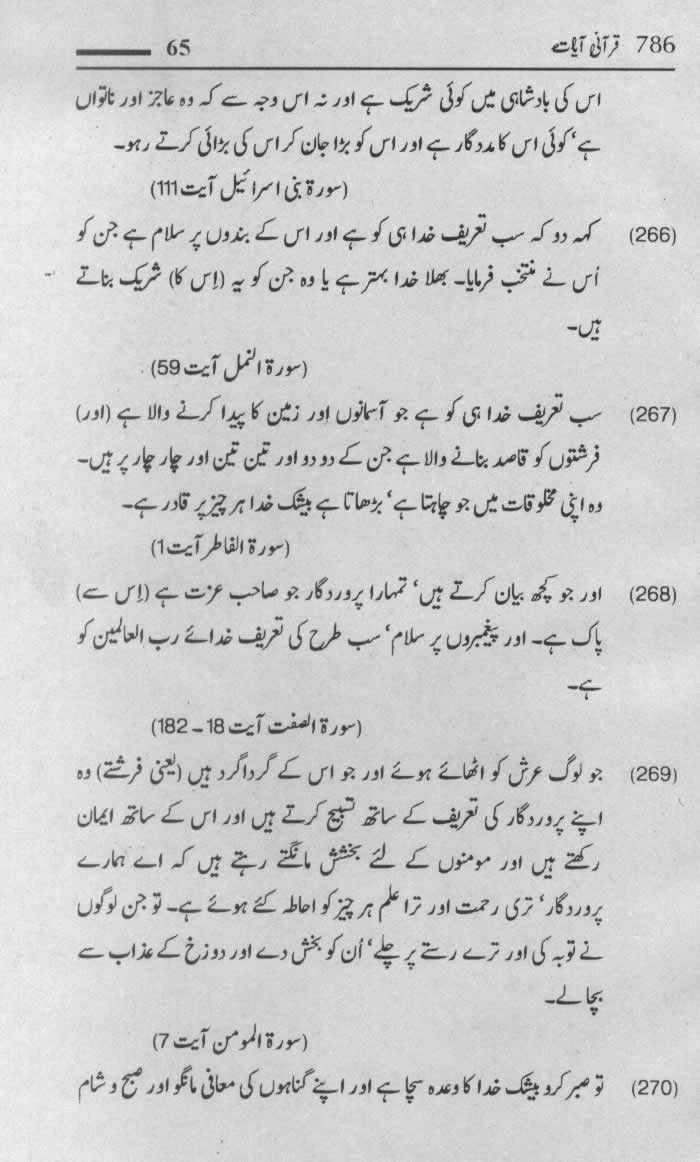 786 قرآنی آیات 65
اس کی بادشاہی میں کوئی شریک ہے اور نہ اس وجہ سے کہ وہ عاجز اور ناتواں
ہے‘ کوئی اس کا مددگار ہے اور اس کو بڑا جان کر اس کی بڑائی کرتے رہو۔
(سورۃ بنی اسرائیل آیت 111)
(266) کہہ دو کہ سب تعریف خدا ہی کو ہے اور اس کے بندوں پر سلام ہے جن کو
اُس نے منتخب فرمایا۔ بھلا خدا بہتر ہے یا وہ جن کو یہ (اِس کا) شریک بناتے
ہیں۔
(سورۃ النمل آیت 59)
(267) سب تعریف خدا ہی کو ہے جو آسمانوں اور زمین کا پیدا کرنے والا ہے (اور)
فرشتوں کو قاصد بنانے والا ہے جن کے دو دو اور تین تین اور چار چار پر ہیں۔
وہ اپنی مخلوقات میں جو چاہتا ہے‘ بڑھاتا ہے بیشک خدا ہر چیز پر قادر ہے۔
(سورۃ الفاطر آیت 1)
(268) اور جو کچھ بیان کرتے ہیں‘ تمہارا پروردگار جو صاحب عزت ہے (اِس سے)
پاک ہے۔ اور پیغمبروں پر سلام‘ سب طرح کی تعریف خدائے رب العالمین کو
ہے۔
(سورۃ الصفت آیت 18 ۔ 182)
(269) جو لوگ عرش کو اٹھائے ہوئے اور جو اس کے گرداگرد ہیں (یعنی فرشتے) وہ
اپنے پروردگار کی تعریف کے ساتھ تسبیح کرتے ہیں اور اس کے ساتھ ایمان
رکھتے ہیں اور مومنوں کے لئے بخشش مانگتے رہتے ہیں کہ اے ہمارے
پروردگار‘ تری رحمت اور ترا علم ہر چیز کو احاطہ کئے ہوئے ہے۔ تو جن لوگوں
نے توبہ کی اور ترے رستے پر چلے‘ اُن کو بخش دے اور دوزخ کے عذاب سے
بچا لے۔
(سورۃ المومن آیت 7)
(270) تو صبر کرو بیشک خدا کا وعدہ سچا ہے اور اپنے گناہوں کی معافی مانگو اور صبح و شام